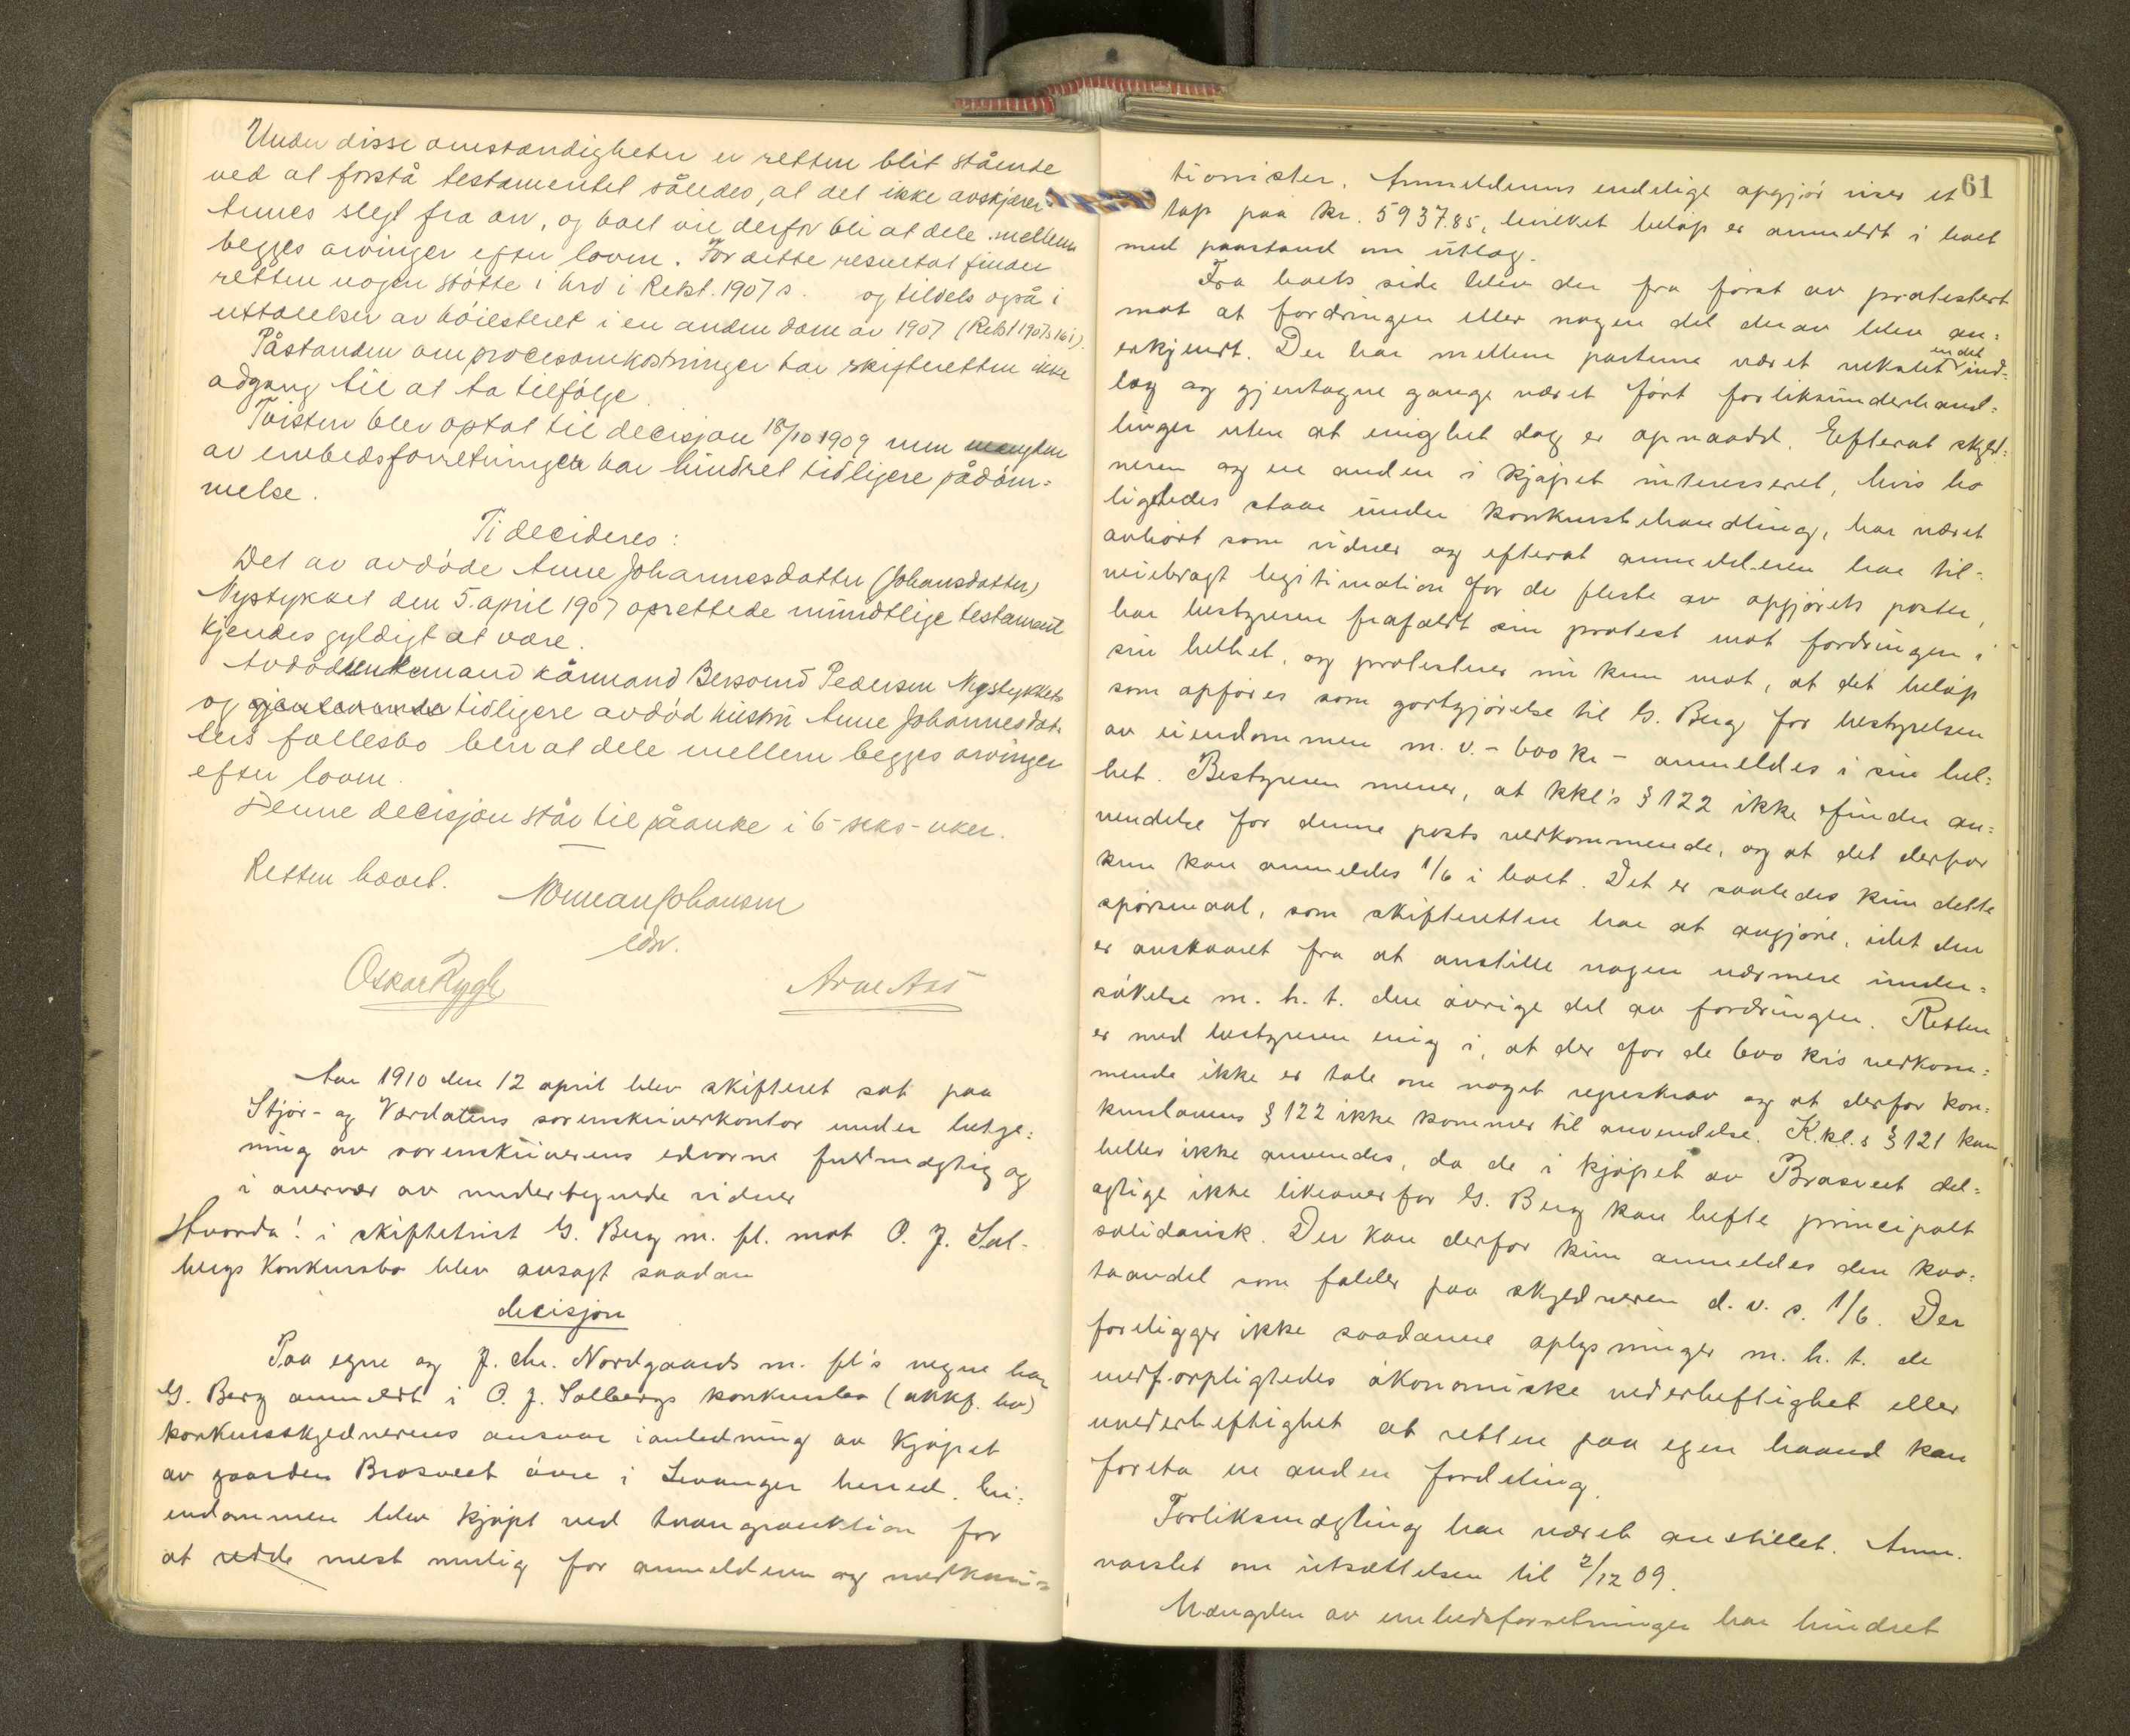 Under disse omstændigheter er retten blit stående
ved at forstå testamentet således, at det ikke avskjærer
Annes slegt fra arv, og boet vil derfor bli at dele mellem
begges arvinger efter loven. For dette resultat finder
retten nogen støtte i hrd i Retst. 1907 s. og tildels også i
uttalelser av höiesteret i en anden dom av 1907 (Retst 1907 s 161).
Påstanden om procesomkostninger har skifteretten ikke
adgang til at ta tilfølge.
Tvisten blev optat til decisjon 18/10 1909 men mængden
av embedsforretninger har hindret tidligere pådøm=
melse.
Ti decideres:
Det av avdøde Anne Johannesdatter (Johansdatter)
Nystykket den 5. april 1907 oprettede mundtlige testament
kjendes gyldigt at være.
Avdøde enkemand kårmand Bersvend Pedersen Nystykkets
og gjenlevende tidligere avdød hustru Anne Johannesdat-
ters fællesbo blir at dele mellem begges arvinger
efter loven.
Denne decisjon står til påanke i 6-seks-uker.
Retten hævet.
Norman Johansen
edsv.
Oskar Rygh Arne Aas
Aar 1910 den 12 april blev skifteret sat paa
Stjør- og Værdalens sorenskriverkontor under betje=
ning av sorenskriverens edsvorne fuldmægtig og
i overvær av undertegnede vidner
Hvorda! i skiftetvist G. Berg m. fl. mot O. J. Sol-
bergs Konkursbo blev avsagt saadan
decisjon
Paa egne og J. Chr. Nordgaards m. fl's vegne har
G. Berg anmeldt i O. J. Solbergs konkursbo (akkf. bo)
konkursskyldnerens ansvar i anledning av kjøpet
av gaarden Brasveet øvre i Levanger herred. Ei=
endommen blev kjøpt ved tvangsauktion for
at redde mest mulig for anmelderen og medkau=
61
tionister. Anmelderens endelige opgjør viser et
tap paa kr. 5937.85, hvilket beløp er anmeldt i boet
med paastand om utlæg.
Fra boets side blev der fra først av protestert
mot at fordringen eller nogen del derav blev an=
erkjendt. Der har mellem parterne været vekslet en del ind=
læg og gjentagne gange været ført forliksunderhand=
linger uten at enighet dog er opnaadd. Efterat skyld=
neren og en anden i kjøpet interesseret, hvis bo
ligeledes staar under konkursbehandling, har været
avhørt som vidner og efterat anmelderen har til=
veiebragt legitimation for de fleste av opgjørets poster,
har bestyreren frafaldt sin protest mot fordringen i
sin helhet, og protesterer nu kun mot, at det beløp
som opføres som godtgjørelse til G. Berg for bestyrelsen
av eiendommen m. v. - 600 kr - anmeldes i sin hel=
het. Bestyreren mener, at kkl's § 122 ikke finder an=
vendelse for denne posts vedkommende, og at det derfor
kun kan anmeldes 1/6 i boet. Det er saaledes kun dette
spørsmaal, som skifteretten har at avgjøre, idet den
er avskaaret fra at anstille nogen nærmere under=
søkelse m. h. t. den øvrige del av fordringen. Retten
er med bestyreren enig i, at der for de 600 kr's vedkom=
mende ikke er tale om noget regreskrav og at derfor kon=
kurslovens § 122 ikke kommer til anvendelse. K.kl.s § 121 kan
heller ikke anvendes, da de i kjøpet av Brasveet del=
agtige ikke likeoverfor G. Berg kan hefte principalt
solidarisk. Der kan derfor kun anmeldes den kvo=
taandel som falder paa skyldneren d. v. s. 1/6. Der
foreligger ikke saadanne oplysninger m. h. t. de
medforpligtedes økonomiske vederheftighet eller
uvederheftighet at retten paa egen haand kan
foreta en anden fordeling.
Forliksmægling har været anstillet. Anm.
varslet om utsættelsen til 2/12 09.
Mængden av embedsforretninger har hindret